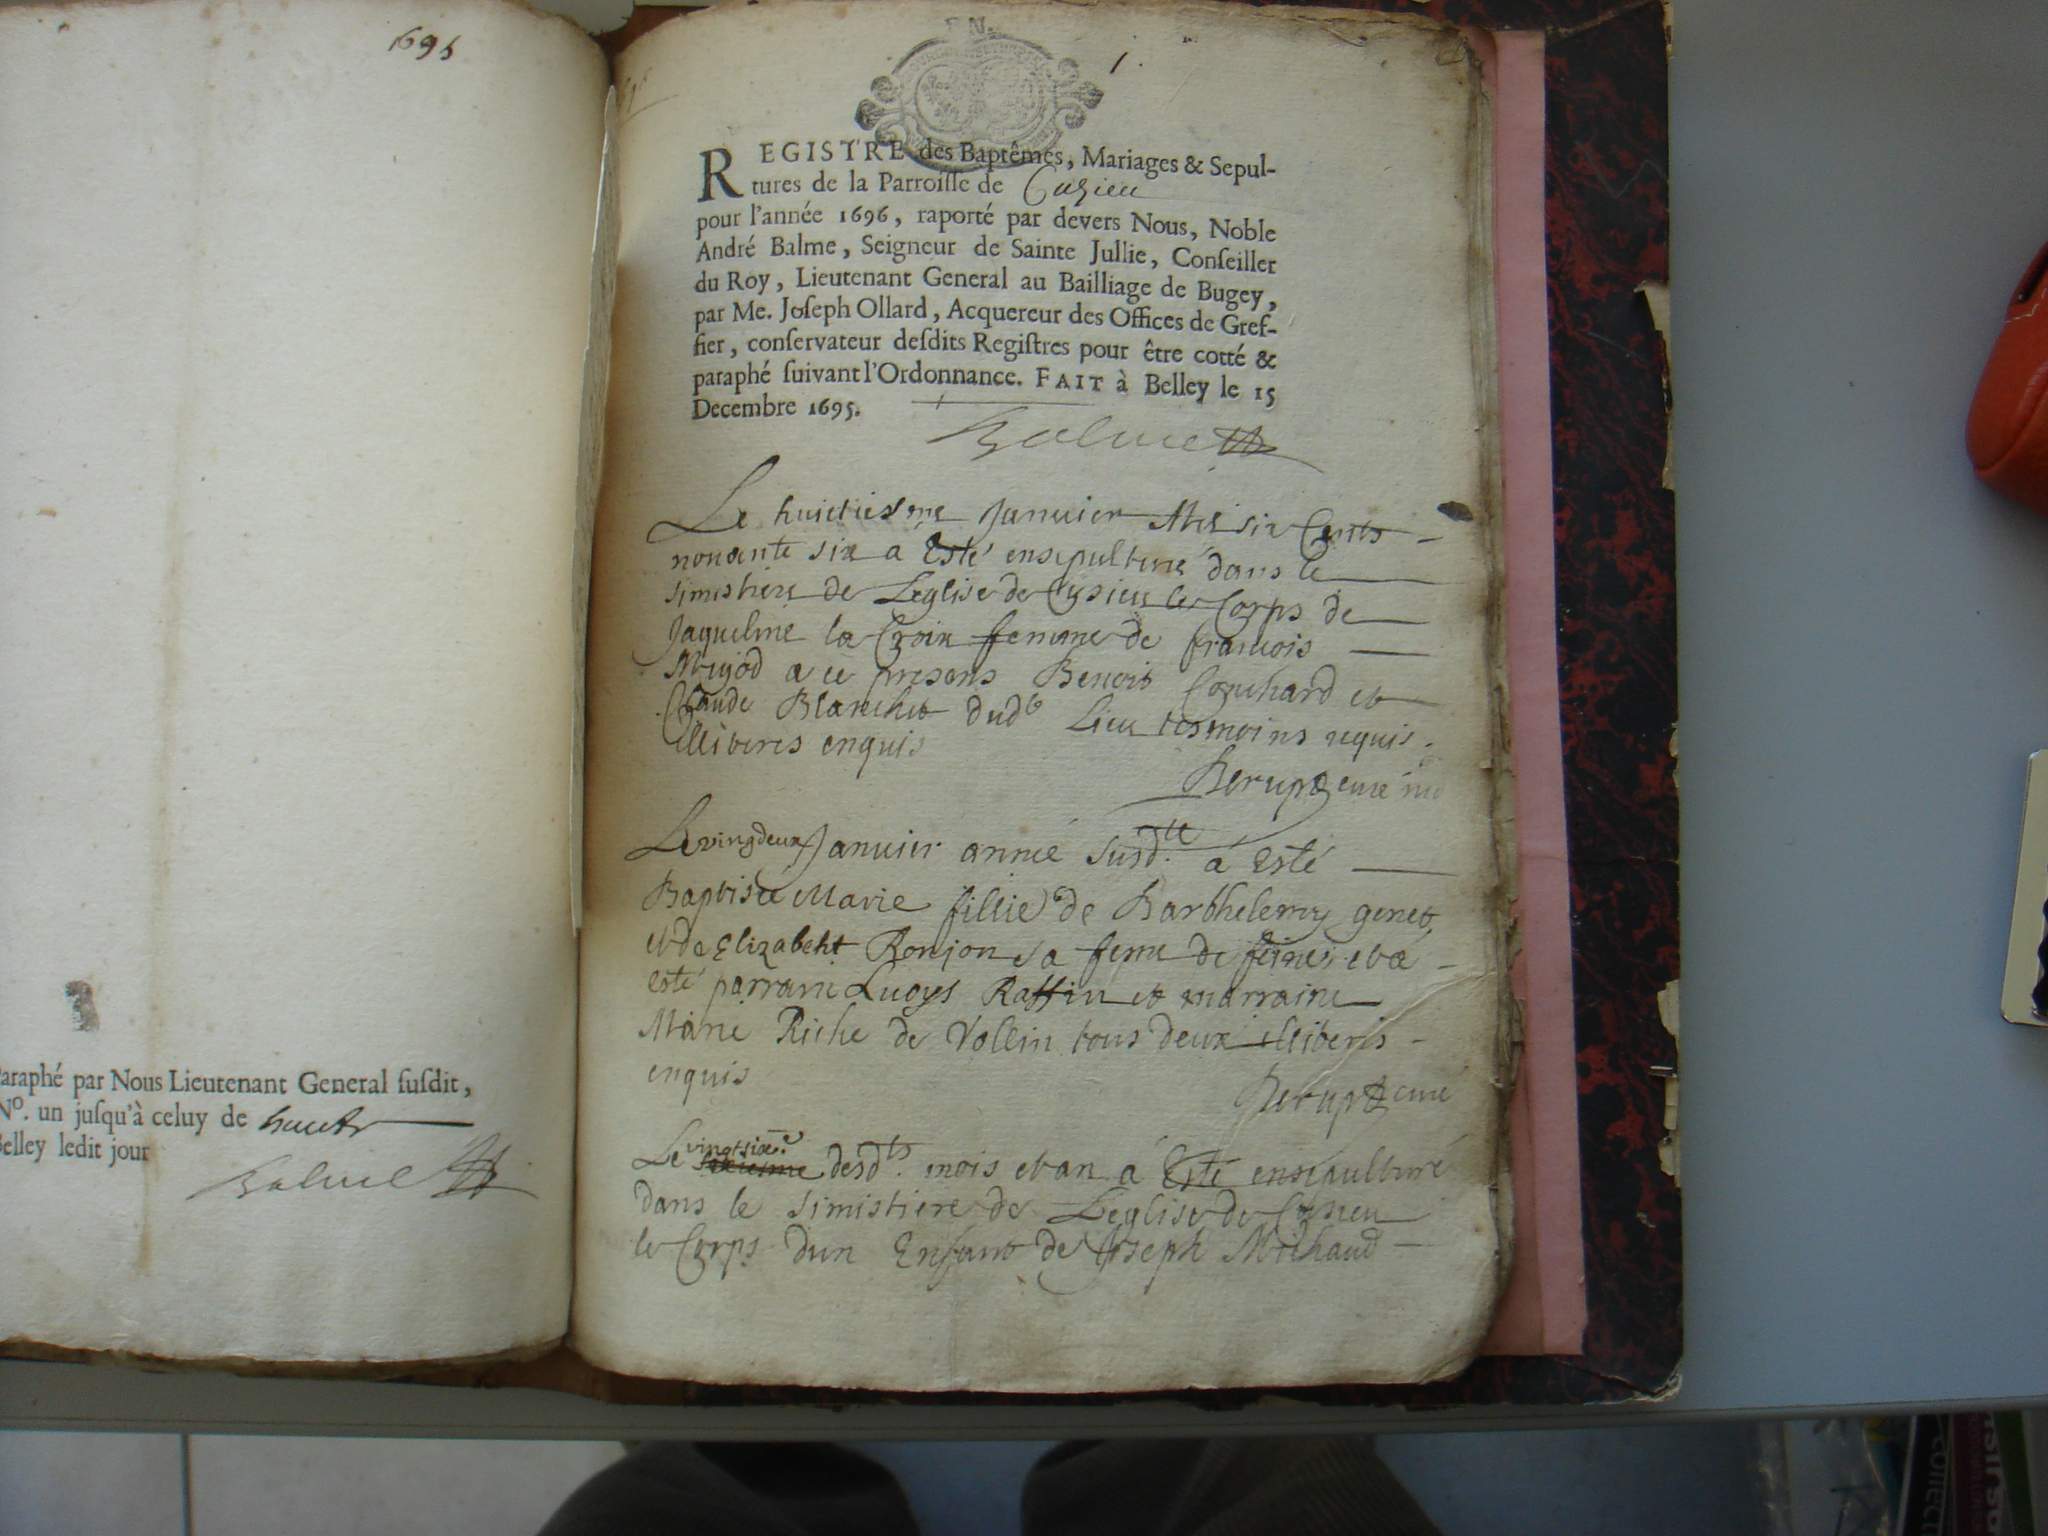 1695
paraphé par Nous Lieutenant General susdit,
N°. un jusqu'à celuy de huict
Belley ledit jour
Balme
1.
REGISTRE des Baptêmes, Mariages & Sepul-
tures de la Parroisse de Cuzieu
pour l'année 1696, raporté par devers Nous, Noble
André Balme, Seigneur de Sainte Jullie, Conseiller
du Roy, Lieutenant General au Bailliage de Bugey,
par Me. Joseph Ollard, Acquereur des Offices de Gref-
fier, conservateur desdits Registres pour être cotté &
paraphé suivant l'Ordonnance. FAIT à Belley le 15
Decembre 1695.
Balme
Le huictiesme Janvier Mil six Cents
nonante six a Esté ensepulturé dans le
simistiere de Leglise de Cusieu le Corps de
Jaqueline la Croix femme de francois
a ce presens Benoit Couchard et
Claude Blanchet dud^t Lieu tesmoins requis
illiteres enquis
curé
Le vingdeux Janvier année susd.^te á Esté
Baptisée Marie fillie de Barthelemy genet
et de Elizabeht Ronjon sa feme de et a
esté parrain Luoys Raffin et marraine
Marie Riche de Vollin tous deux illiteris
enquis
curé
Le vingtsixe. desd.^ts mois et an á Esté ensepulturé
dans le simistiere de Leglise de Cusieu
le Corps dun Enfant de Joseph Michaud